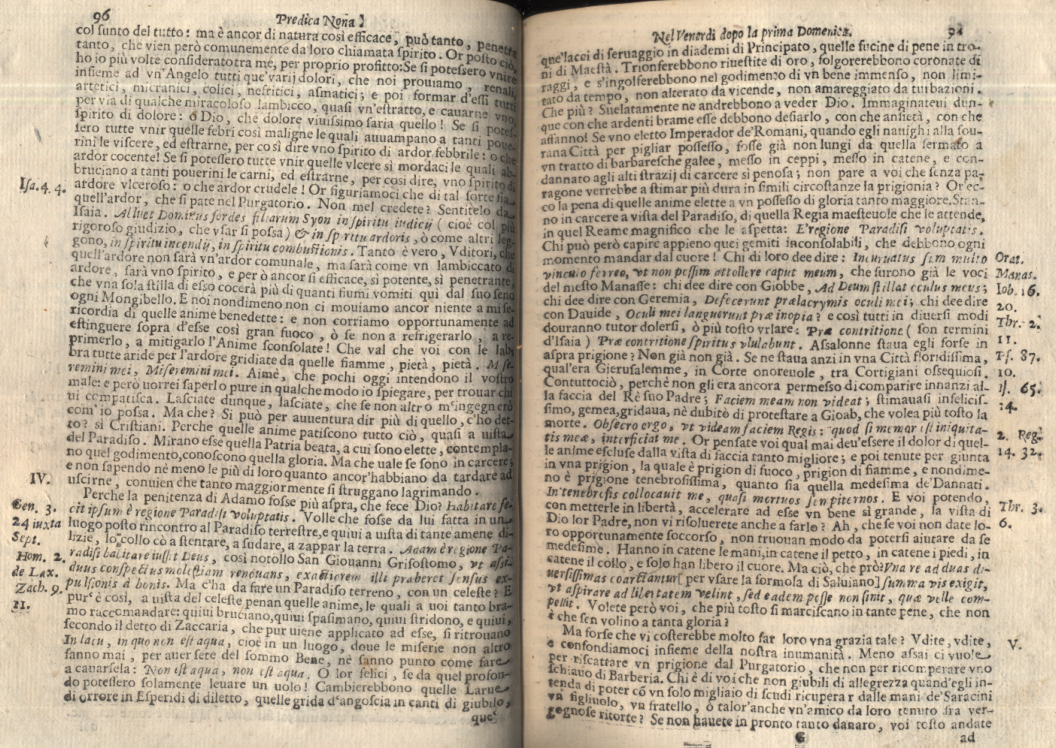 96
Predica Nona.
col sunto del tutto: ma è ancor di natura così efficace, può tanto, penetra
tanto, che vien però comunemente da loro chiamata spirito. Or posto ciò,
ho io più volte considerato tra me, per proprio profitto: Se si potessero vnire
insieme ad vn'Angelo tutti que'varij dolori, che noi prouiamo, renali,
artetici, micranici, colici, nefritici, asmatici; e poi formar d'essi tutti
per via di qualche miracoloso lambicco, quasi vn'estratto, e cauarne vno
spirito di dolore: ò Dio, che dolore viuissimo saria quello! Se si potes-
sero tutte vnir quelle febri così maligne le quali auuampano a tanti poue-
rini le viscere, ed estrarne, per così dire vno spirito di ardor febbrile: o che
ardor cocente! Se si potessero tutte vnir quelle vlcere sì mordaci le quali ab-
bruciano a tanti pouerini le carni, ed estrarne, per così dire, vno spirito di
Isa. 4. 4.
ardore vlceroso: o che ardor crudele! Or figuriamoci che di tal sorte sia
quell'ardor, che si pate nel Purgatorio. Non mel credete? Sentitelo da
Isaia. Abluet Dominus sordes filiarum Syon in spiritu iudicij (cioè col più
rigoroso giudizio, che vsar si possa) & in spiritu ardoris, ò come altri leg-
gono, in spiritu incendij, in spiritu combustionis. Tanto è vero, Vditori, che
quell'ardore non sarà vn'ardor comunale, ma sarà come vn lambiccato di
ardore, sarà vno spirito, e però ancor sì efficace, sì potente, sì penetrante,
che vna sola stilla di esso cocerà più di quanti fiumi vomiti quì dal suo seno
ogni Mongibello. E noi nondimeno non ci mouiamo ancor niente a mise-
ricordia di quelle anime benedette: e non corriamo opportunamente ad
estinguere sopra d'esse così gran fuoco, ò se non a refrigerarlo, a re-
primerlo, a mitigarlo! Anime sconsolate! Che val che voi con le lab-
bra tutte aride per l'ardore gridiate da quelle fiamme, pietà, pietà. Mise-
remini mei, Miseremini mei. Aimè, che pochi oggi intendono il vostro
male: e però uorrei saperlo pure in qualche modo io spiegare, per trouar chi
ui compatisca. Lasciate dunque, lasciate, che se non altro m'ingegnerò
com'io possa. Ma che? Si può per auuentura dir più di quello, c'ho det-
to? sì Cristiani. Perche quelle anime patiscono tutto ciò, quasi a uista
del Paradiso. Mirano esse quella Patria beata, a cui sono elette, contempla-
no quel godimento, conoscono quella gloria. Ma che uale se sono in carcere;
e non sapendo nè meno le più di loro quanto ancor'habbiano da tardare ad
uscirne, conuien che tanto maggiormente si struggano lagrimando.
IV.
Perche la penitenza di Adamo fosse più aspra, che fece Dio? Habitare fe-
Gen. 3.
cit ipsum è regione Paradisi voluptatis. Volle che fosse da lui fatta in un
24 iuxta
luogo posto rincontro al Paradiso terrestre, e quiui a uista di tante amene di-
Sept.
lizie, lo collocò a stentare, a sudare, a zappar la terra. Adam è regione Pa-
Hom. 2.
radisi habitare iussit Deus, così notollo San Giouanni Grisostomo, vt assi-
de Lax.
duus conspectus molestiam renouans, exactiorem illi praberet sensus ex-
Zach. 9.
pulsionis à bonis. Ma c'ha da fare un Paradiso terreno, con un celeste? E
11.
pur'è così, a uista del celeste penan quelle anime, le quali a uoi tanto bra-
mo raccomandare: quiui bruciano, quiui spasimano, quiui stridono, e quiui,
secondo il detto di Zaccaria, che pur uiene applicato ad esse, si ritrouano
In lacu, in quo non est aqua, cioè in un luogo, doue le miserie non altro
fanno mai, per auer sete del sommo Bene, nè sanno punto come fare
a cauarsela: Non est aqua, non est aqua. O lor felici, se da quel profon-
do potessero solamente leuare un uolo! Cambierebbono quelle Larue
di orrore in Esperidi di diletto, quelle grida d'angoscia in canti di giubilo,
que'
Nel Venerdì dopo la prima Domenica.
que'lacci di seruaggio in diademi di Principato, quelle fucine di pene in tro-
ni di Maestà. Trionferebbono riuestite di oro, folgorerebbono coronate di
raggi, e s'ingolferebbono nel godimento di vn bene immenso, non limi-
tato da tempo, non alterato da vicende, non amareggiato da tuibazioni.
Che più? Suelatamente ne andrebbono a veder Dio. Immaginateui dun-
que con che ardenti brame esse debbono desiarlo, con che ansietà, con che
affanno! Se vno eletto Imperador de'Romani, quando egli nauighi alla sou-
rana Città per pigliar possesso, fosse già non lungi da quella fermato a
vn tratto di barbaresche galee, messo in ceppi, messo in catene, e con-
dannato agli alti strazij di carcere sì penosa; non pare a voi che senza pa-
ragone verrebbe a stimar più dura in simili circostanze la prigionia? Or ec-
co la pena di quelle anime elette a vn possesso di gloria tanto maggiore. Stan-
no in carcere a vista del Paradiso, di quella Regia maesteuole che le attende,
in quel Reame magnifico che le aspetta: E'regione Paradisi voluptatis.
Chi può però capire appieno quei gemiti inconsolabili, che debbono ogni
momento mandar dal cuore! Chi di loro dee dire: Incuruatus sum multo
Orat.
vinculo ferreo, vt non possim attollere caput meum, che furono già le voci
Manas.
del mesto Manasse: chi dee dire con Giobbe, Ad Deum stillat oculus meus;
Iob. 16.
chi dee dire con Geremia, Defecerunt præ lacrymis oculi mei; chi dee dire
20.
con Dauide, Oculi mei languerunt præ inopia? e così tutti in diuersi modi
Thr. 2.
douranno tutor dolersi, ò più tosto vrlare: Præ contritione (son termini
11.
d'Isaia) Præ contritione spiritus vlulabunt. Assalonne staua egli forse in
Ps. 87.
aspra prigione? Non già non già. Se ne staua anzi in vna Città floridissima,
10.
qual'era Gierusalemme, in Corte onoreuole, tra Cortigiani ossequiosi.
Is. 65.
Contuttociò, perchè non gli era ancora permesso di comparire innanzi al-
la faccia del Rè suo Padre; Faciem meam non videat; stimauasi infelicis-
14.
simo, gemea, gridaua, nè dubitò di protestare a Gioab, che volea più tosto la
morte. Obsecro ergo, vt videam faciem Regis: quod si memor est iniquita-
2. Reg.
tis meæ, interficiat me. Or pensate voi qual mai deu'essere il dolor di quel-
14. 32.
le anime escluse dalla vista di faccia tanto migliore; e poi tenute per giunta
in vna prigion, la quale è prigion di fuoco, prigion di fiamme, e nondime-
no è prigione tenebrosissima, quanto sia quella medesima de'Dannati.
In tenebrosis collocauit me, quasi mortuos sempiternos. E voi potendo,
Thr. 3.
con metterle in libertà, accelerare ad esse vn bene sì grande, la vista di
6.
Dio lor Padre, non vi risoluerete anche a farlo? Ah, che se voi non date lo-
ro opportunamente soccorso, non truouan modo da potersi aiutare da se
medesime. Hanno in catene le mani, in catene il petto, in catene i piedi, in
catene il collo, e solo han libero il cuore. Ma ciò, che prò? Vna re ad duas di-
uersissimas coarctantur [per vsare la formola di Saluiano] summa vis exigit,
vt aspirare ad libertatem velint, sed eadem posse non sinit, quæ velle com-
pellit. Volete però voi, che più tosto si marciscano in tante pene, che non
è che sen volino a tanta gloria?
V.
Ma forse che vi costerebbe molto far loro vna grazia tale? Vdite, vdite,
e confondiamoci insieme della nostra inumanità. Meno assai ci vuole
per riscattare vn prigione dal Purgatorio, che non per ricomperare vno
schiauo di Barberia. Chi è di voi che non giubili di allegrezza quand'egli in-
tenda di poter cõ vn solo migliaio di scudi ricuperar dalle mani de'Saracini
vn figliuolo, vn fratello, ò talor'anche vn'amico da loro tenuto fra ver-
gognose ritorte? Se non hauete in pronto tanto danaro, voi tosto andate
G
ad